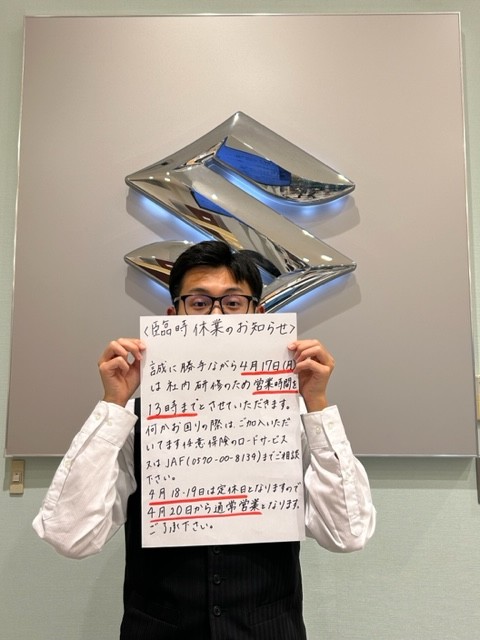 〈臨時休業のお知らせ〉
誠に勝手ながら4月17日(月)
は社内研修のため営業時間を
13時までとさせていただきます。
何かお困りの際は、ご加入いただ
いてます任意保険のロードサービス
スはJAF(0570-00-8139)までご相談
下さい。
4月18・19日は定休日となりますので
4月20日から通常営業となります。
ご了承下さい。